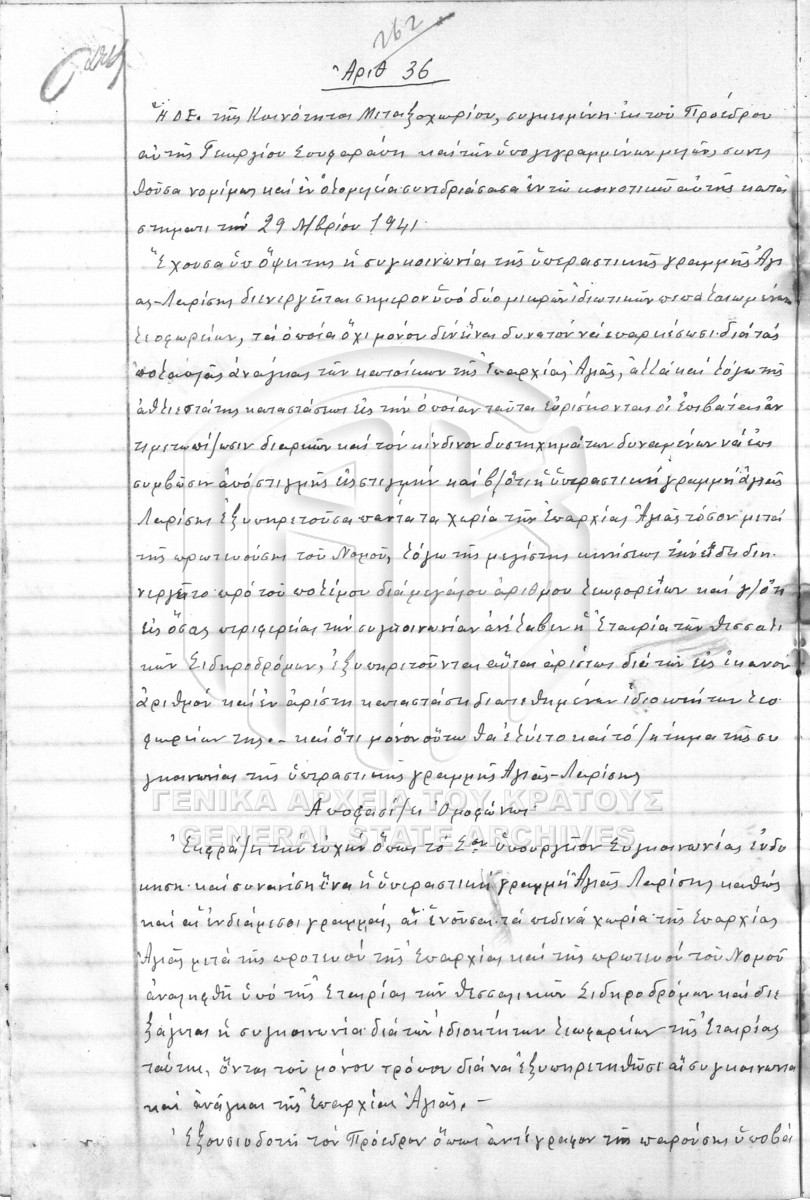 262
Ἀριθ 36
Ἡ Δ.Ε. τῆς Κοινότητος Μεταξοχωρίου, συγκειμένη ἐκ τοῦ Προέδρου
αὐτῆς Γεωργίου καὶ τῶν ὑπογεγραμμένων μελῶν συνελ
θοῦσα νομίμως καὶ ἐν ὁλομελεία συνεδριάσασα ἐν τῶ κοινοτικῶ αὐτῆς κατα
στήματι τήν 29 Νβρίου 1941.
Ἔχουσα ὑπ' ὄψη της ἡ συγκοινωνία τῆς ὑπεραστικῆς γραμμῆς Ἁγι
ᾶς-Λαρίσης διενεργεῖται σήμερον ὑπό δύο μικρῶν ἰδιωτικῶν πεπαλαιωμένων
λεοφωρείων, τά ὁποία ὄχι μόνον δέν εἶναι δυνατόν νά ἐπαρκέσωσι διά τάς
ἀνάγκας τῶν κατοίκων τῆς Ἐπαρχίας Ἁγιᾶς, ἀλλά καί λόγω τῆς
ἀθλιεστάτης καταστάσεως εἰς τήν ὁποίαν ταῦτα εὑρίσκονται οἱ ἐπιβάται ἀν
τιμετωπίζωσιν διαρκῶν καί τόν κίνδινον δυστηχημάτων δυναμένων νά ἐπι
συμβῶσιν ἀπό στιγμῆς εἰς στιγμήν καί β/ ὅτι ἡ ὑπεραστική γραμμή Ἁγιᾶς
Λαρίσης ἐξυπηρετοῦσα πάντα τα χωρία τῆς Ἐπαρχίας Ἁγιᾶς τόσον μετά
τῆς πρωτευούσης τοῦ Νομοῦ, λόγω τῆς μεγίστης κινήσεως διε
νεργεῖτο πρό τοῦ πολέμου διά μεγάλου ἀριθμου λεωφορείων καί γ/ ὅτι
εἰς ὅσας περιφερείας τήν συγκοινωνίαν ἀνέλαβεν ἡ Ἑταιρία τῶν Θεσσαλι
κῶν Σιδηροδρόμων, ἐξυπηρετοῦνται αὗται ἀρίστως διά τῶν εἰς ἱκανον
ἀριθμόν καί ἐν ἀρίστη καταστάσει διατιθημένων ἰδιοκτήτων λεο
φωρείων της.- καί ὅτι μόνον οὕτω θά ἐλύετο καί τό ζήτημα τῆς συ
γκοινωνίας τῆς ὑπεραστικῆς γραμμῆς Ἁγιᾶς-Λαρίσης
Αποφασίζει Ὁμοφώνως
Ἐκφράζει τήν εὐχήν ὅπως το Σον Ὑπουργεῖον Συγκοινωνίας εὐδο
κήση καί συνανέση ἵνα ἡ ὑπεραστική γραμμή Ἁγιᾶς Λαρίσης καθώς
καί αἱ ἐνδιάμεσοι γραμμαί, αἱ ἑνοῦσαι τά πεδινά χωρία τῆς Ἐπαρχίας
Ἁγιᾶς μετά τῆς προτευού τῆς Ἐπαρχίας καί τῆς πρωτευού τοῦ Νομοῦ
ἀναληφθῆ ὑπό τῆς Ἑταιρίας τῶν Θεσσαλικῶν Σιδηροδρόμων καί διε
ξάγεται ἡ συγκοινωνία διά τῶν ἰδιοκτήτων λεωφορείων τῆς Ἑταιρίας
ταύτης, ὄντος τοῦ μόνου τρόπου διά νά ἐξυπηρετηθῶσι αἱ συγκοινωνια
καί ἀνάγκαι τῆς Ἐπαρχίας Ἁγιᾶς.-
Ἐξουσιοδοτεῖ τόν Πρόεδρον ὅπως ἀντίγραφον τῆς παρούσης ὑποβά
ΓΕΝΙΚΑ ΑΡΧΕΙΑ ΤΟΥ ΚΡΑΤΟΥΣ
GENERAL STATE ARCHIVES